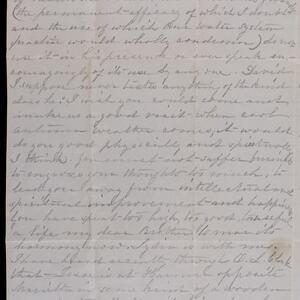 (the permanent efficacy of which I doubt
and the use of which Our water system
practice would wholly condemn) do not
use it in his presence or ever speak en-
couragingly of its use by any one. David
I suppose never tastes anything of the kind
does he? I wish you could come and
make us a good visit when cool
autumn weather comes, it would
do you good physically and spiritually
I think. You must not suffer
to engross your thoughts too much, to
lead you away from intellectual and
spiritual improvement and happiness
You have spent too high, too good, too useful
a life my dear Brother to mar its
harmony now. Lydia is with me.
I have heard recently through
that Jesse is at opposite
in some kind of a wooden